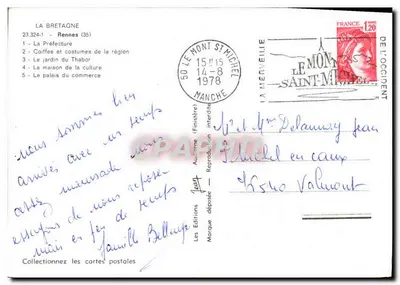 LA BRETAGNE
23.324-1 - Rennes (35)
1 - La Préfecture
2 - Coiffes et costumes de la région
3 - Le jardin du Thabor
4 - La maison de la culture
5 - Le palais du commerce
nous sommes bien
arrivés avec un temps
assez maussade nous
essayons de nous reposer
mais en peu de temps
famille
Collectionnez les cartes postales
Les Editions Jos
Audierne (Finistère)
Marque déposée
Reproduction interdite
50 LE MONT ST MICHEL
15H15
14-8
1978
MANCHE
LA MERVEILLE
DE L'OCCIDENT
LE MONT
SAINT-MICHEL
FRANCE
1,20
Mr et Mme Delaunay Jean
St Michel en caux
76540 Valmont
CPArama.com